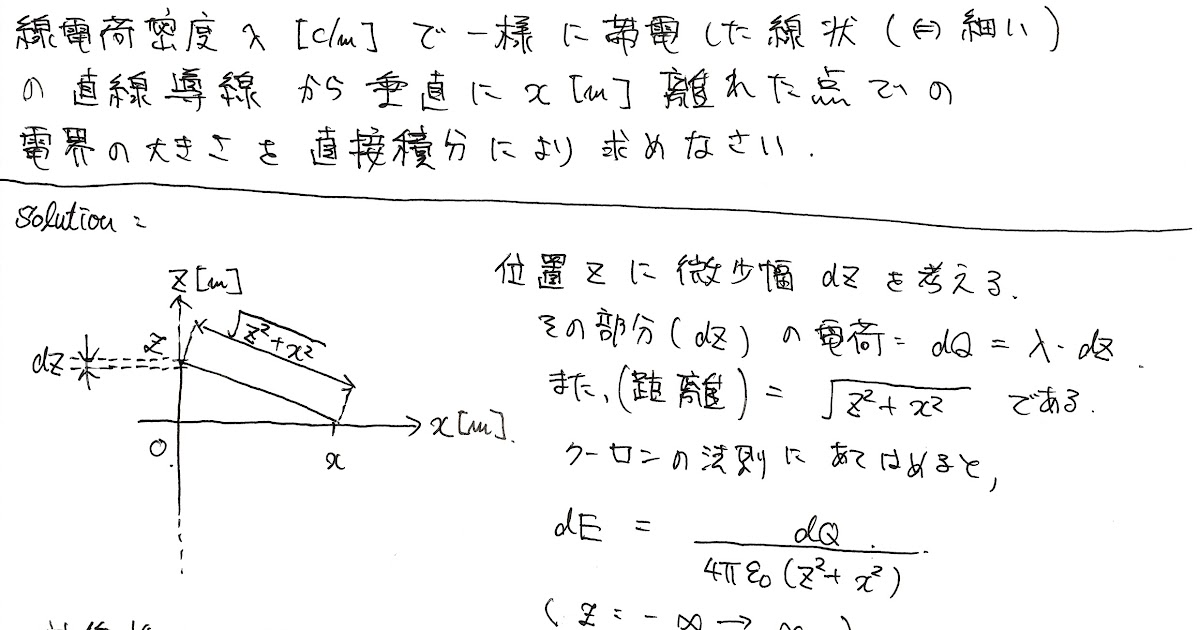 線電荷密度 λ [c/m] で一様に帯電した線状 (⇔細い)
の直線導線から垂直に x [m] 離れた点での
電界の大きさを直接積分により求めなさい.
Solution :
z [m]
√z²+x²
z
dz
x [m].
O
x
位置 z に微少幅 dz を考える.
その部分(dz)の電荷 = dQ = λ・dz.
また、(距離) = √z²+x² である.
クーロンの法則にあてはめると,
dE = dQ / 4πε₀(z²+x²)
( z = -∞ → ∞ )